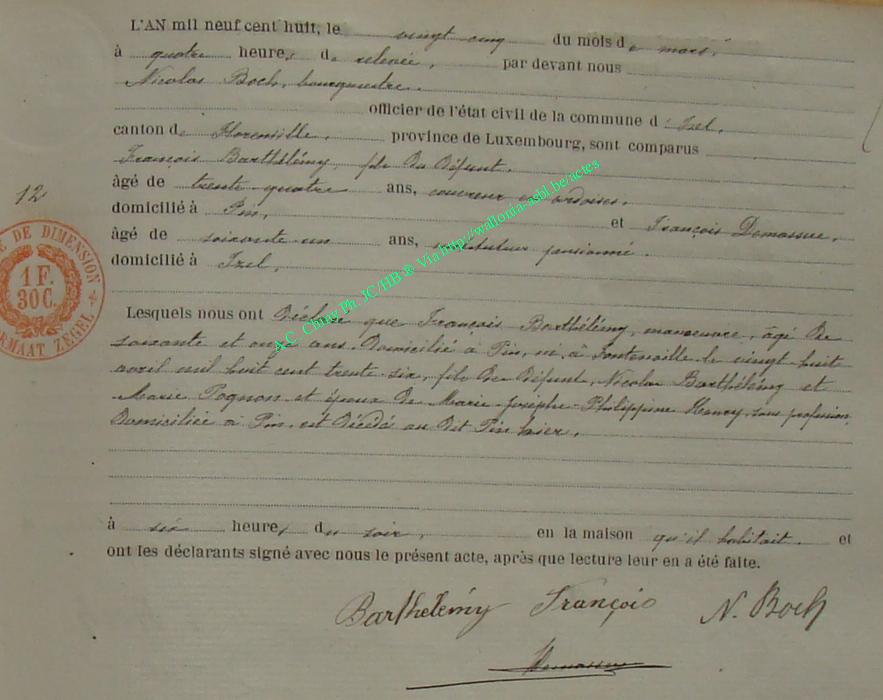 L'AN mil neuf cent huit, le vingt cinq du mois de mars,
à quatre heures de relevée, par devant nous
Nicolas Boch, bourgmestre,
officier de l'état civil de la commune d'Izel,
canton de Florenville, province de Luxembourg, sont comparus
François Barthélémy, fils du Défunt,
âgé de trente quatre ans, couvreur en ardoises,
12
domicilié à Pin, et François Demasure,
âgé de soixante un ans, instituteur pensionné,
domicilié à Izel,
E DE DIMENSION
1 F.
30 C.
RMAAT ZEGEL
A.C. Chiny Ph. JC/HB ® Via http://wallonia-asbl.be/actes
Lesquels nous ont Déclaré que François Barthélémy, manoeuvre, âgé de
soixante et onze ans, Domicilié à Pin, né à Fontenoille le vingt huit
avril mil huit cent trente six, fils de Défunt, Nicolas Barthélémy et
Marie Pognon et époux de Marie-Josèphe-Philippine Henry, sans profession,
Domiciliée à Pin, est Décédé au Dit Pin hier,
à six heures du soir, en la maison qu'il habitait. et
ont les déclarants signé avec nous le présent acte, après que lecture leur en a été faite.
Barthélémy François N. Boch